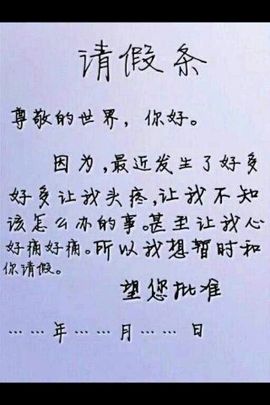 请假条
尊敬的世界，你好。
因为,最近发生了好多
好多让我头疼,让我不知
该怎么办的事。甚至让我心
好痛好痛。所以我想暂时和
你请假。
望您批准
……年……月……日